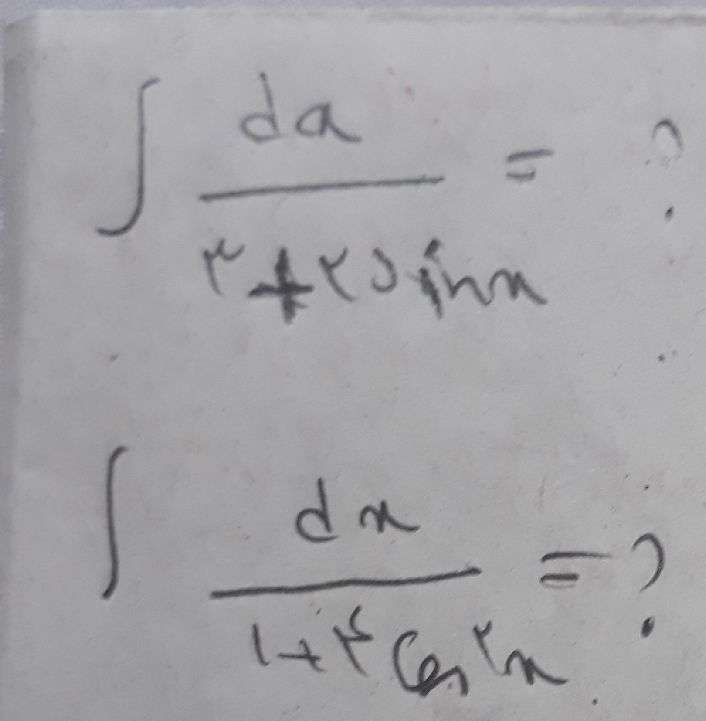 ∫ dx / (۳ + ۲ sin x) = ?
∫ dx / (۱ + ۴ Cos^۲ x) = ?